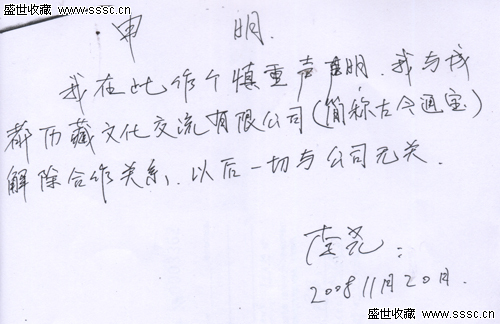 盛世收藏 www.sssc.cn
www.sssc.cn 盛世收藏
申 明.
我在此作个慎重声明.我与成
都历藏文化交流有限公司(简称古今通宝)
解除合作关系,以后一切与公司无关.
李尧:
2008 11月20日.
盛世收藏 www.sssc.cn